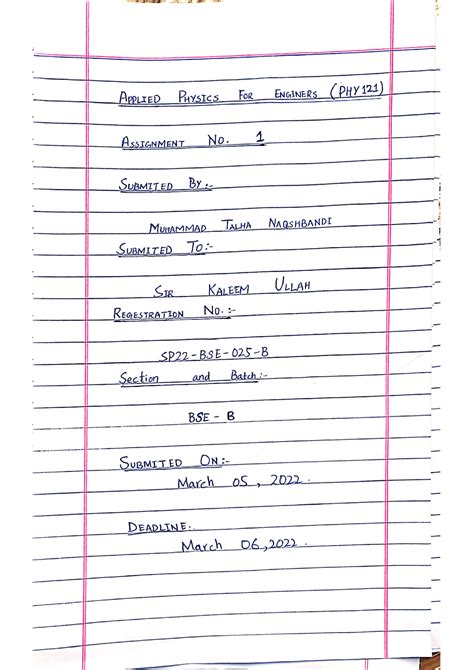 APPLIED PHYSICS FOR ENGINERS (PHY121)
ASSIGNMENT NO. 1
SUBMITED BY:-
MUHAMMAD TALHA NAQSHBANDI
SUBMITED TO:-
SIR KALEEM ULLAH
REGESTRATION NO.:-
SP22-BSE-025-B
Section and Batch:-
BSE - B
SUBMITED ON:-
March 05, 2022.
DEADLINE:-
March 06, 2022.